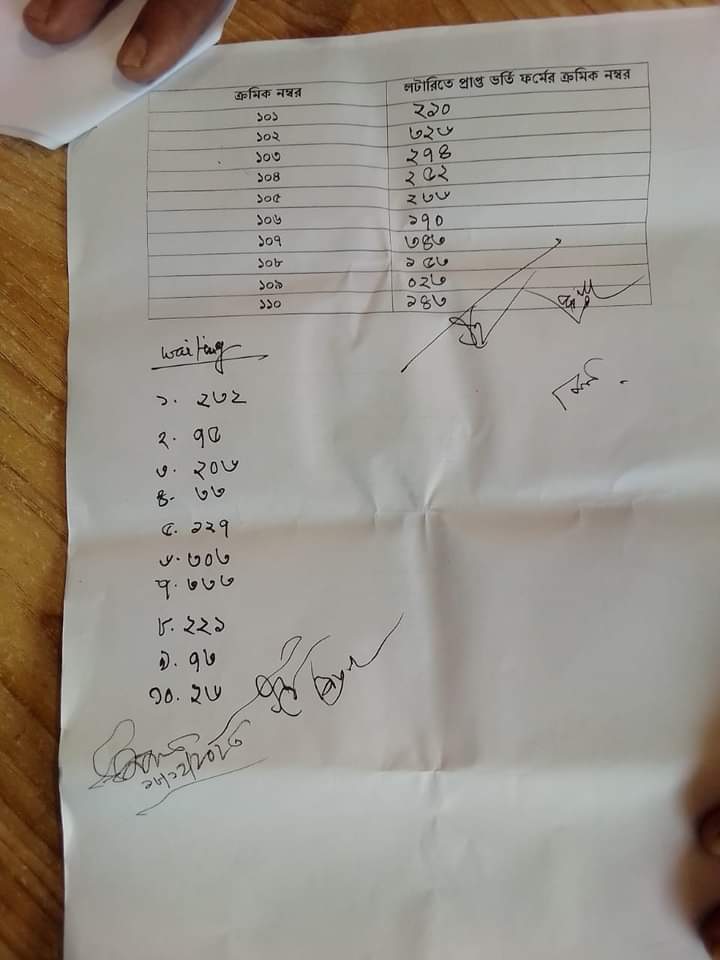 ক্রমিক নম্বর লটারিতে প্রাপ্ত ভর্তি ফর্মের ক্রমিক নম্বর
১০১ ২৯০
১০২ ৩২৬
১০৩ ২৭৪
১০৪ ২৫২
১০৫ ২৩৩
১০৬ ১৭০
১০৭ ৩৪৬
১০৮ ১৫৩
১০৯ ০২৩
১১০ ১৪৬
Waiting
১. ২৩২
২. ৭৫
৩. ২০৬
৪. ৩৩
৫. ১২৭
৬. ৩০৬
৭. ৩৩৩
৮. ২২১
৯. ৭৬
১০. ২৬